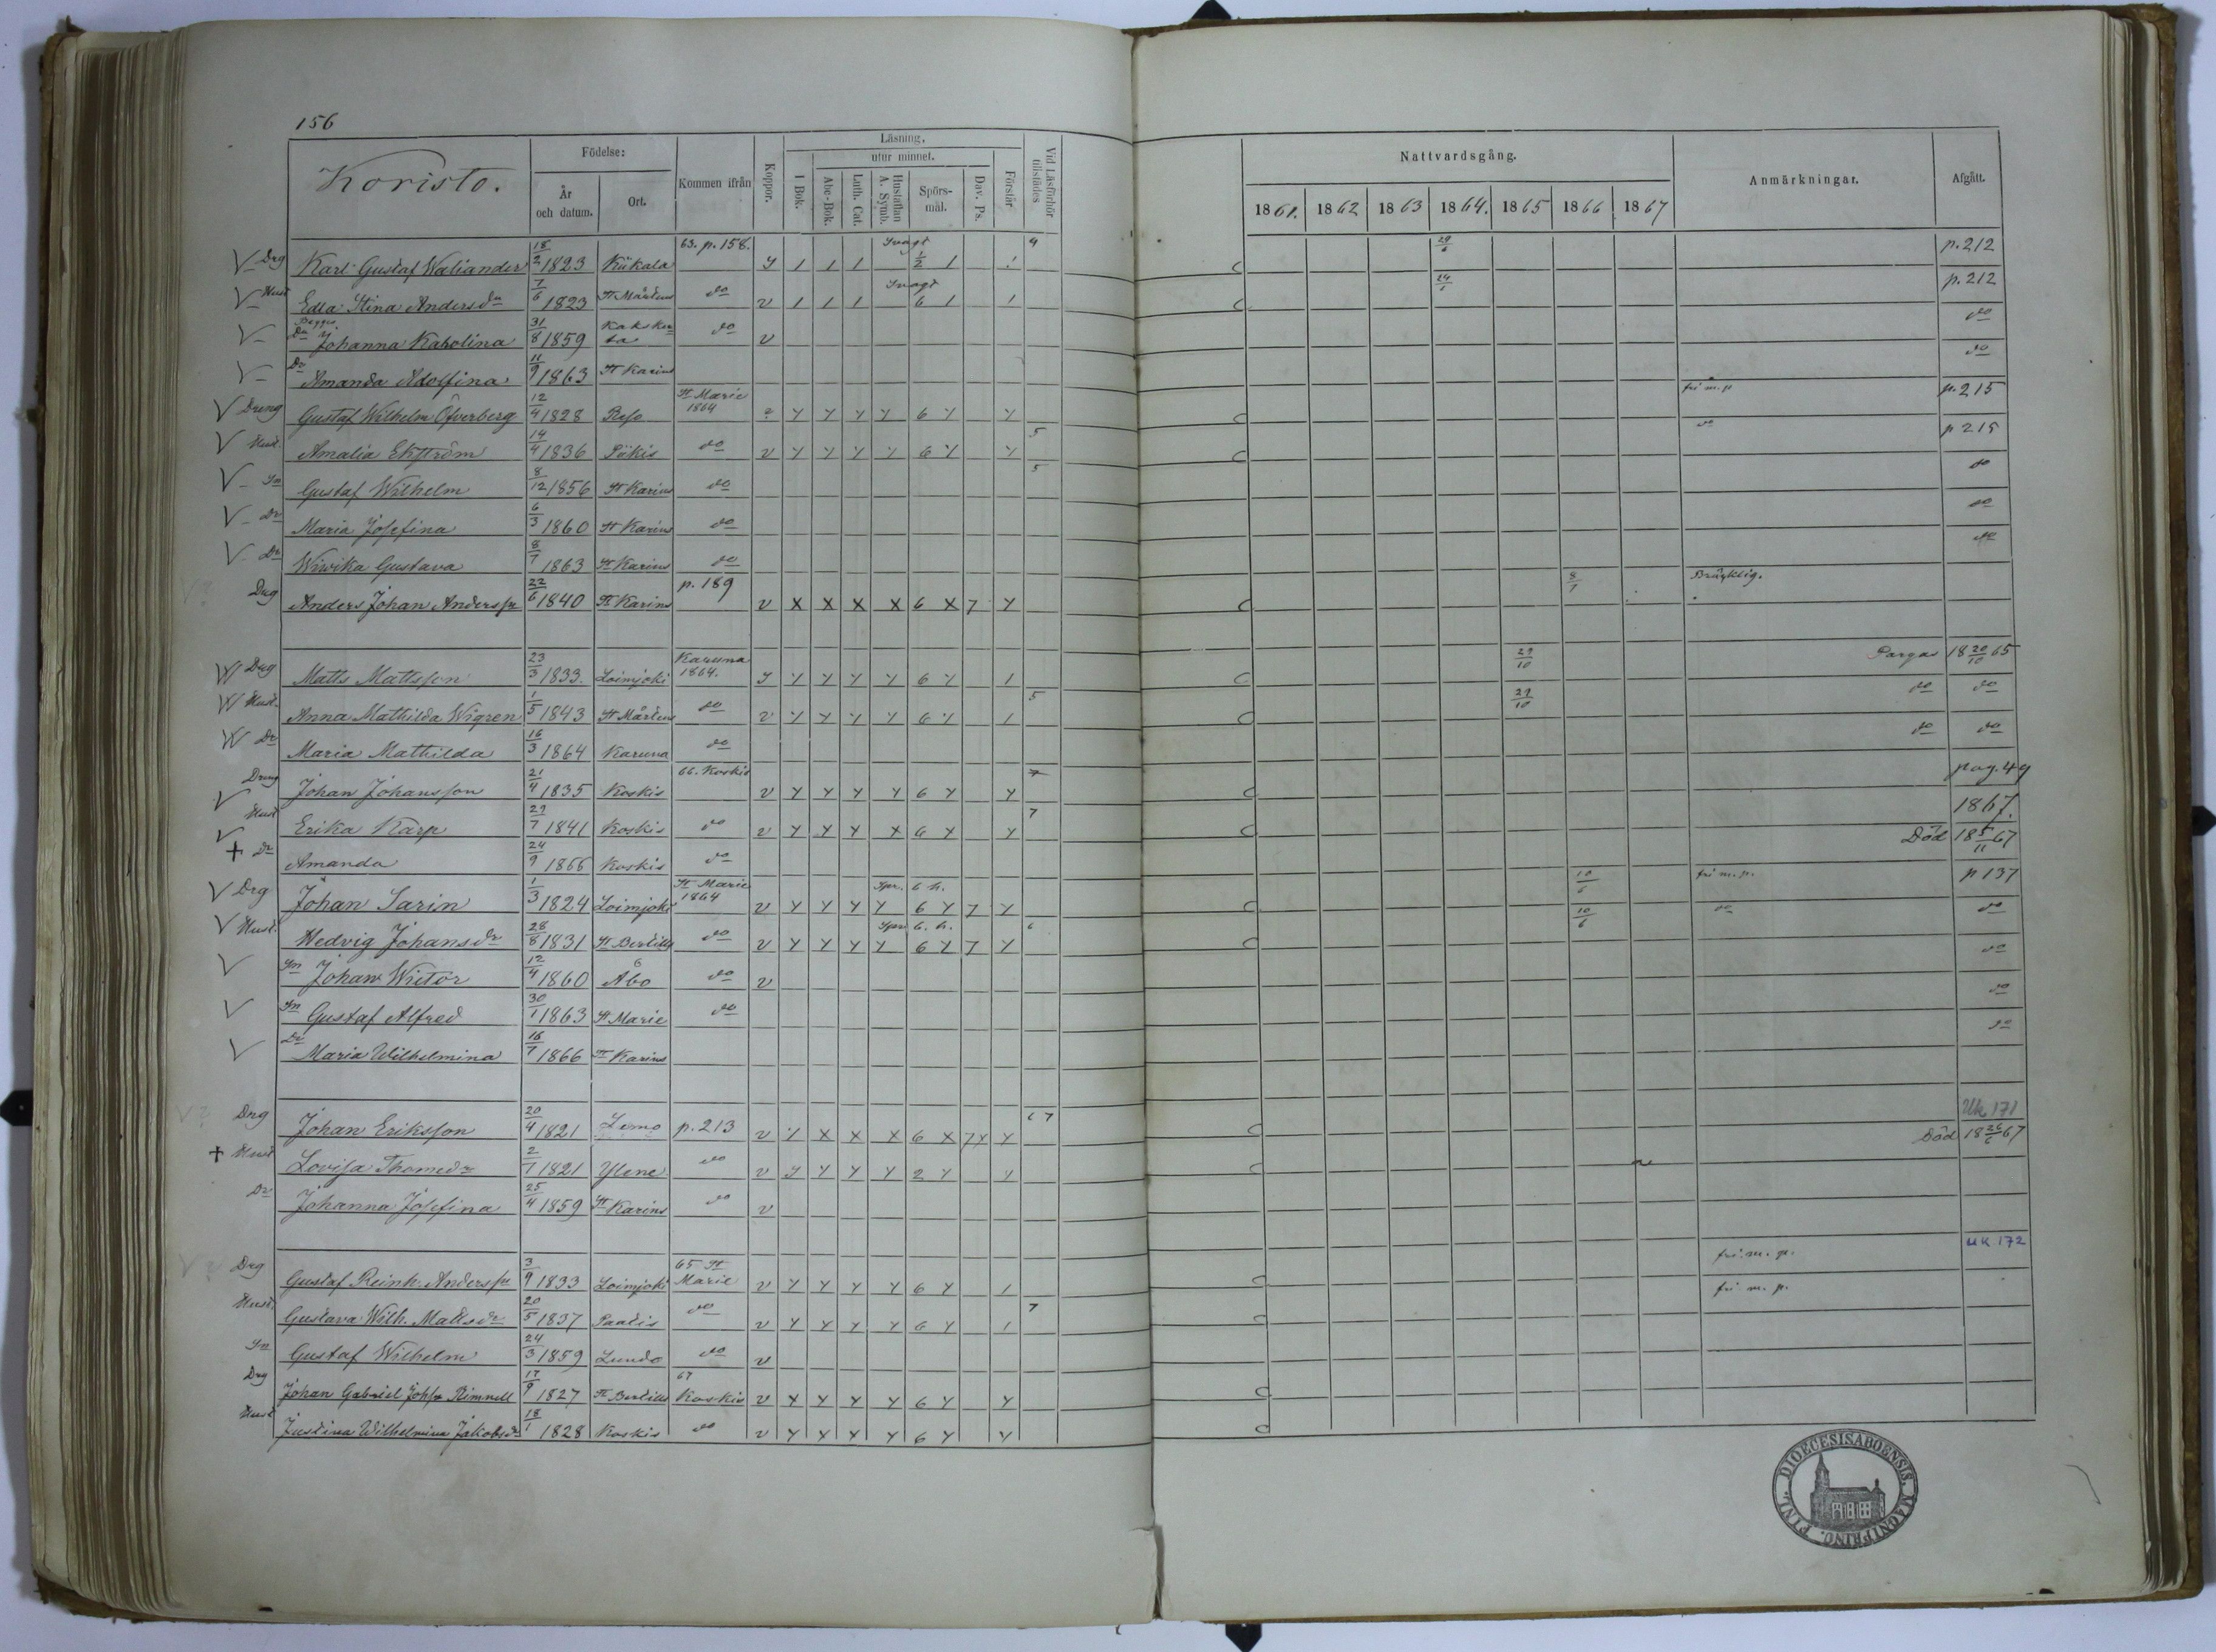 156
Koristo.
Födelse:
År och datum.
Ort.
Kommen ifrån
Koppor.
Läsning.
utur minnet.
I Bok.
Abc-Bok.
Luth. Cat.
Hustaflan A. Symb.
Spörsmål.
Dav. Ps.
Förstår
Vid Läsförhör tillstädes
Nattvardsgång.
1861. 1862 1863 1864. 1865 1866 1867
Anmärkningar.
Afgått.
Drg Karl Gustaf Waliander 18/2 1823 Kiikala 63. p. 158. y / / / Svagt 1/2 / / 9 29/6 p. 212
Hust Edla Stina Andersdr 7/6 1823 St Mårtens do v / / / Svagt 6 / / p. 212
Dr Johanna Karolina 31/8 1859 Kakskerta do v do
Dr Amanda Adolfina 11/9 1863 St Karins do
Dreng Gustaf Wilhelm Öfverberg 12/4 1828 Reso St Marie 1864 y y y y 6 y y fri m. p. p. 215
Hust. Amalia Ekström 14/4 1836 Pökis do v y y y y 6 y y 5 do p 215
Sn Gustaf Wilhelm 8/12 1856 St Karins do 5 do
Dr Maria Josefina 6/3 1860 St Karins do do
Dr Wiwika Gustava 8/7 1863 St Karins do do
Drg Anders Johan Andersson 22/6 1840 St Karins p. 189 v x x x x 6 x 7 y 8/7 Bräcklig.
Drg Matts Mattsson 23/3 1833. Loimjoki Karuna 1864. y y y y y 6 y / 29/10 Pargas 18 20/10 65
Hust. Anna Mathilda Wigren 1/5 1843 St Mårtens do v y y y y 6 y / 5 29/10 do do
Dr Maria Mathilda 16/3 1864 Karuna do do do
Dreng Johan Johansson 21/4 1835 Koskis 66. Koskis v y y y y 6 y y 7 pag. 49
Hust Erika Karp 29/7 1841 Koskis do v y y y x 6 y y 7 1867.
Dr Amanda 24/9 1866 Koskis do Död 18 5/11 67
Drg Johan Sarin 1/3 1824 Loimjoki St Marie 1864 v y y y y Spr. 6 h. 6 y 7 y 10/6 fri m. p. p 137
Hust. Hedvig Johansdr 28/8 1831 St Bertills do v y y y y Spr 6. h. 6 y 7 y 6 10/6 do do
Sn Johan Wictor 12/4 1860 Åbo do v do
Sn Gustaf Alfred 30/1 1863 St Marie do do
Dr Maria Wilhelmina 16/7 1866 St Karins do
Drg Johan Eriksson 20/4 1821 Lemo p. 213 v y x x x 6 x 7 y y 6 7 Uk 171
Hust Lovisa Thomedr 2/7 1821 Ylene do v y y y y 2 y y Död 18 26/6 67
Dr Johanna Josefina 25/4 1859 St Karins do v
Drg Gustaf Reinh. Andersson 3/9 1833 Loimjoki 65 St Marie v y y y y 6 y / fri. m. p. UK 172
Hust. Gustava Wilh. Mattsdr 20/5 1837 Paatis do v y y y y 6 y / 7 fri m. p.
Sn Gustaf Wilhelm 24/3 1859 Lundo do v
Drg Johan Gabriel Rimnell 17/9 1827 St Bertills 67 Koskis v y y y y 6 y y
Hust Justina Wilhelmina Jakobsdr 18/1 1828 Koskis do v y y y y 6 y y
DIOECESIS ABOENSIS. MAGNI PRINC. FINL.